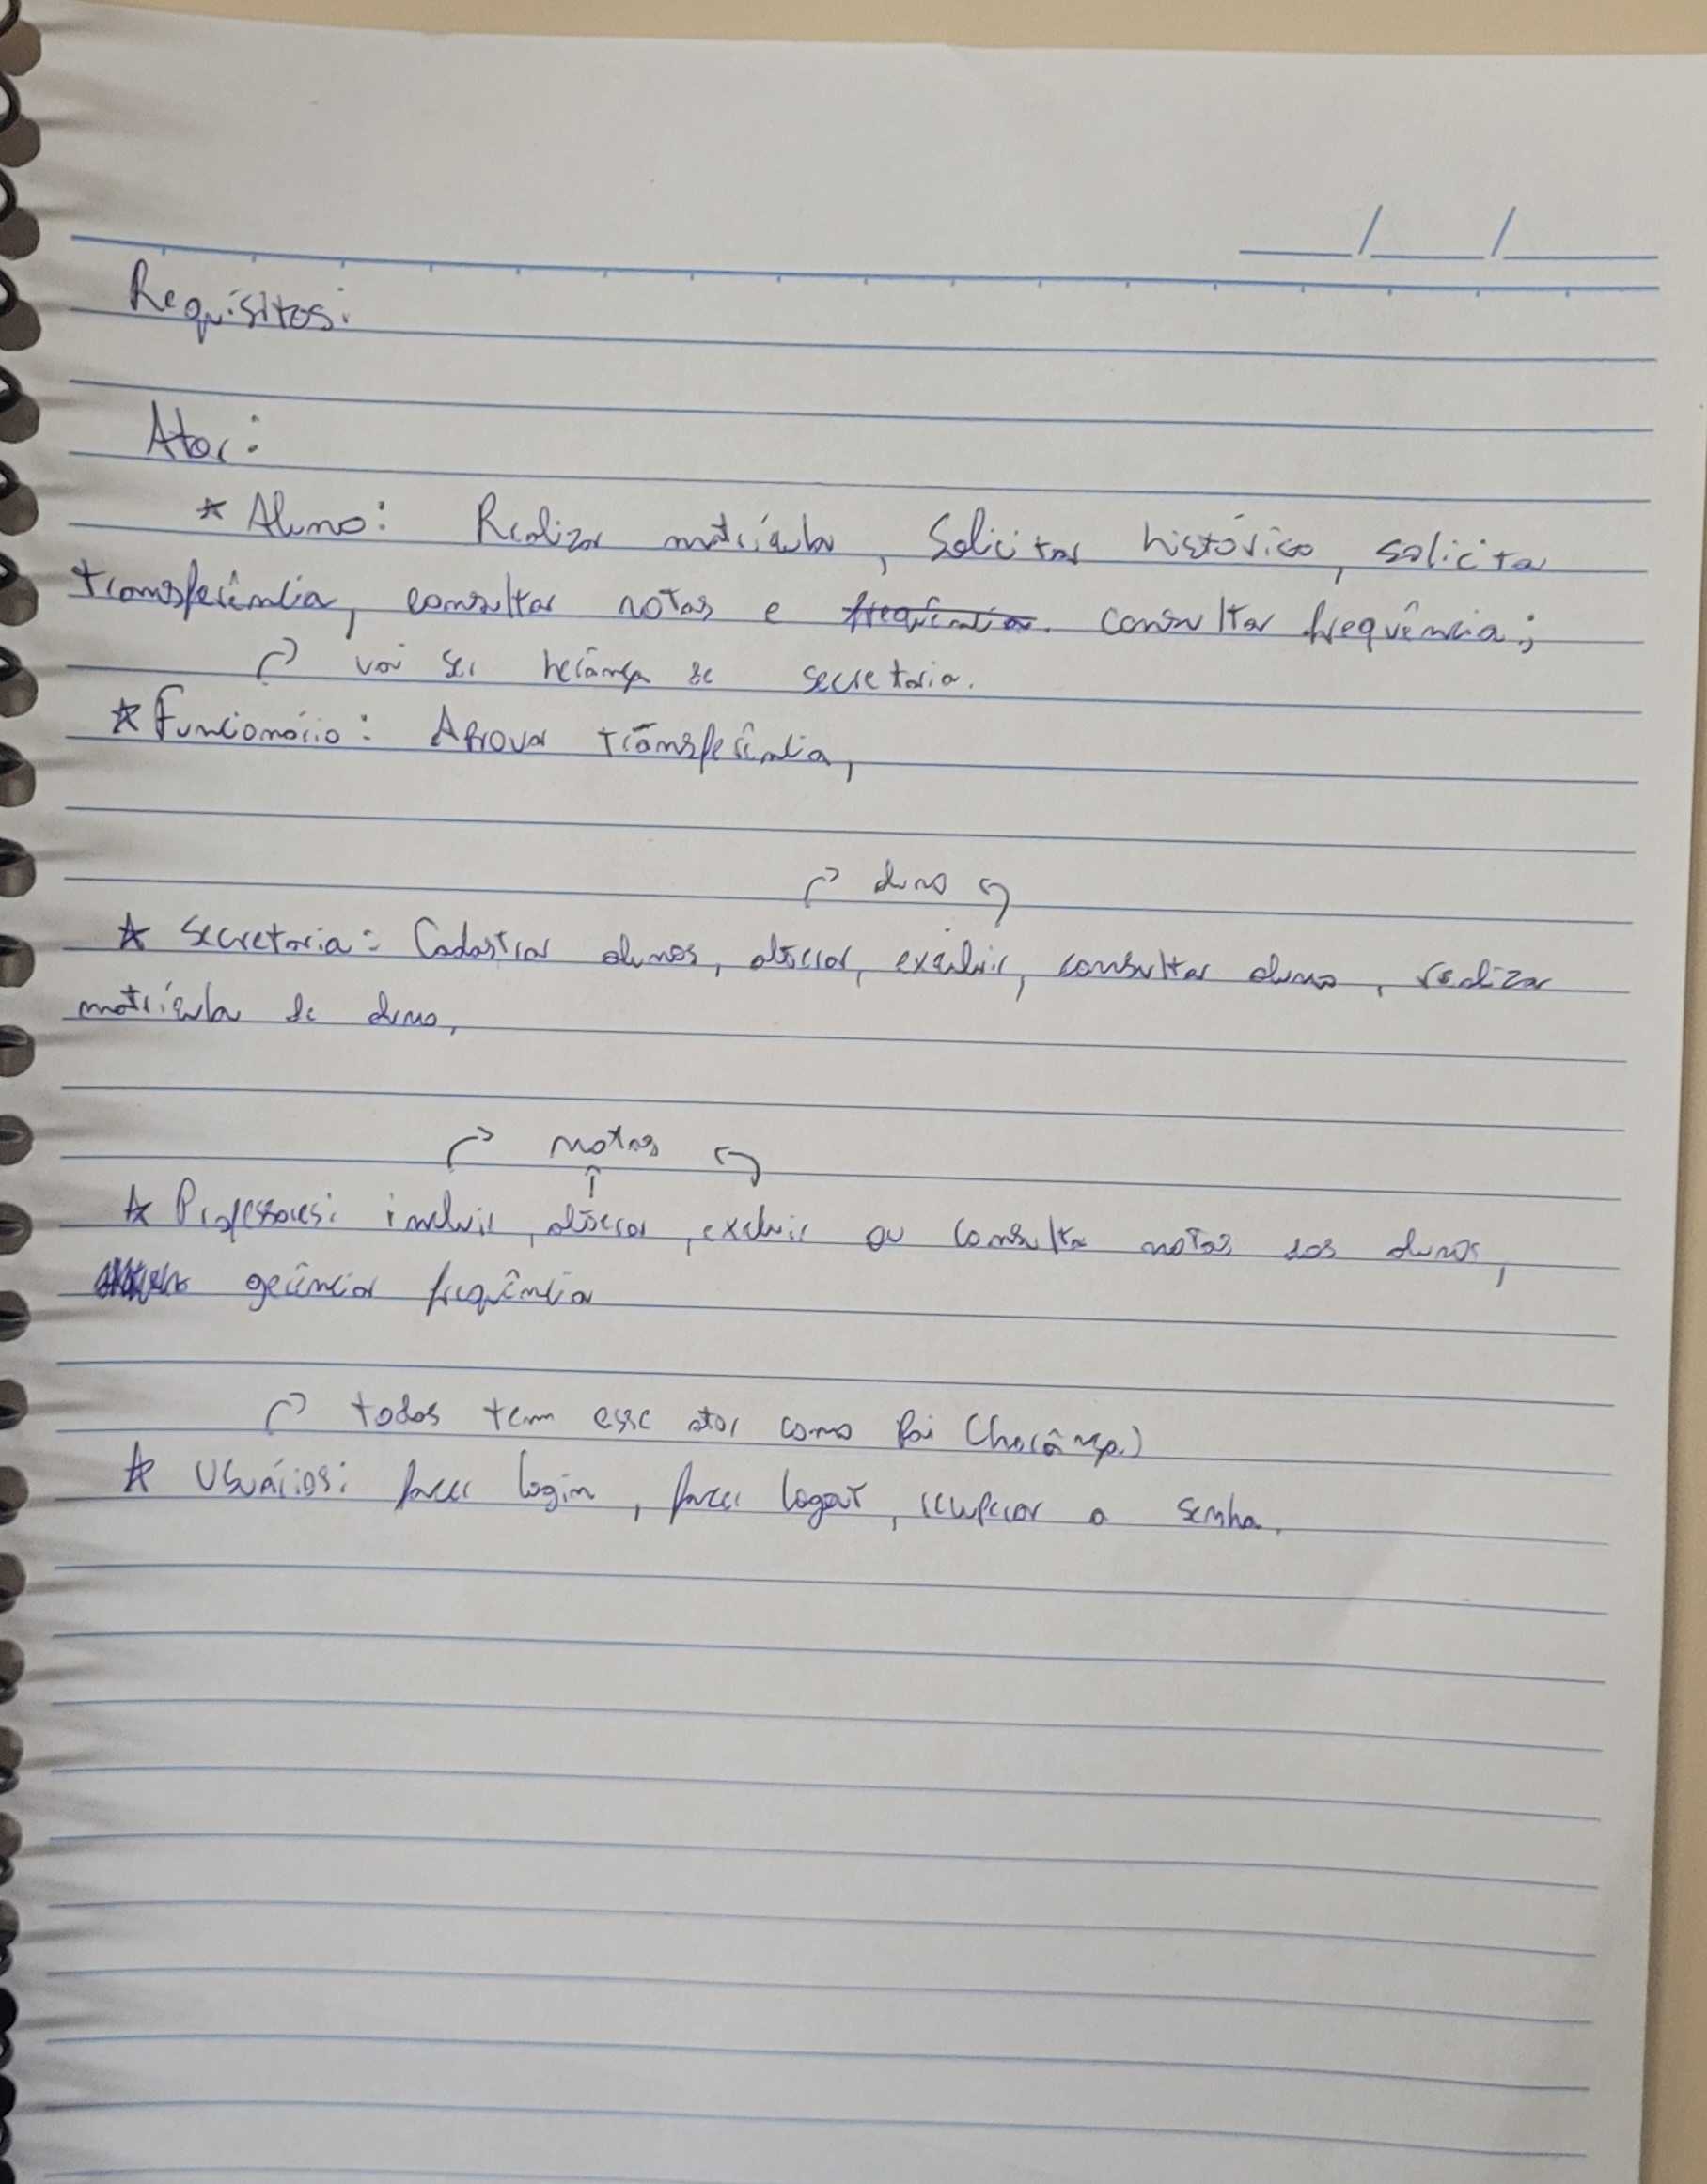 Requisitos:
Ator:
* Aluno: Realizar matrícula, Solicitar histórico, solicita
transferência, consultar notas e frequência. consultar frequência;
vai ser herança de secretaria.
* Funcionário: Aprovar transferência,
aluno
* Secretaria: Cadastrar alunos, alterar, excluir, consultar aluno, realizar
matrícula de aluno,
notas
* Professores: incluir, alterar, excluir ou consulta notas dos alunos,
gerênciar frequência
todos tem esse ator como pai (herânça)
* Usuários: fazer login, fazer logout, recuperar a senha.